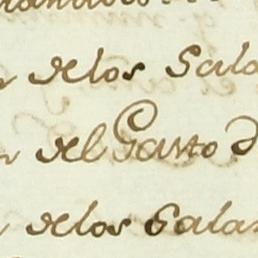 delos Sala
del Gasto d
delos Salar